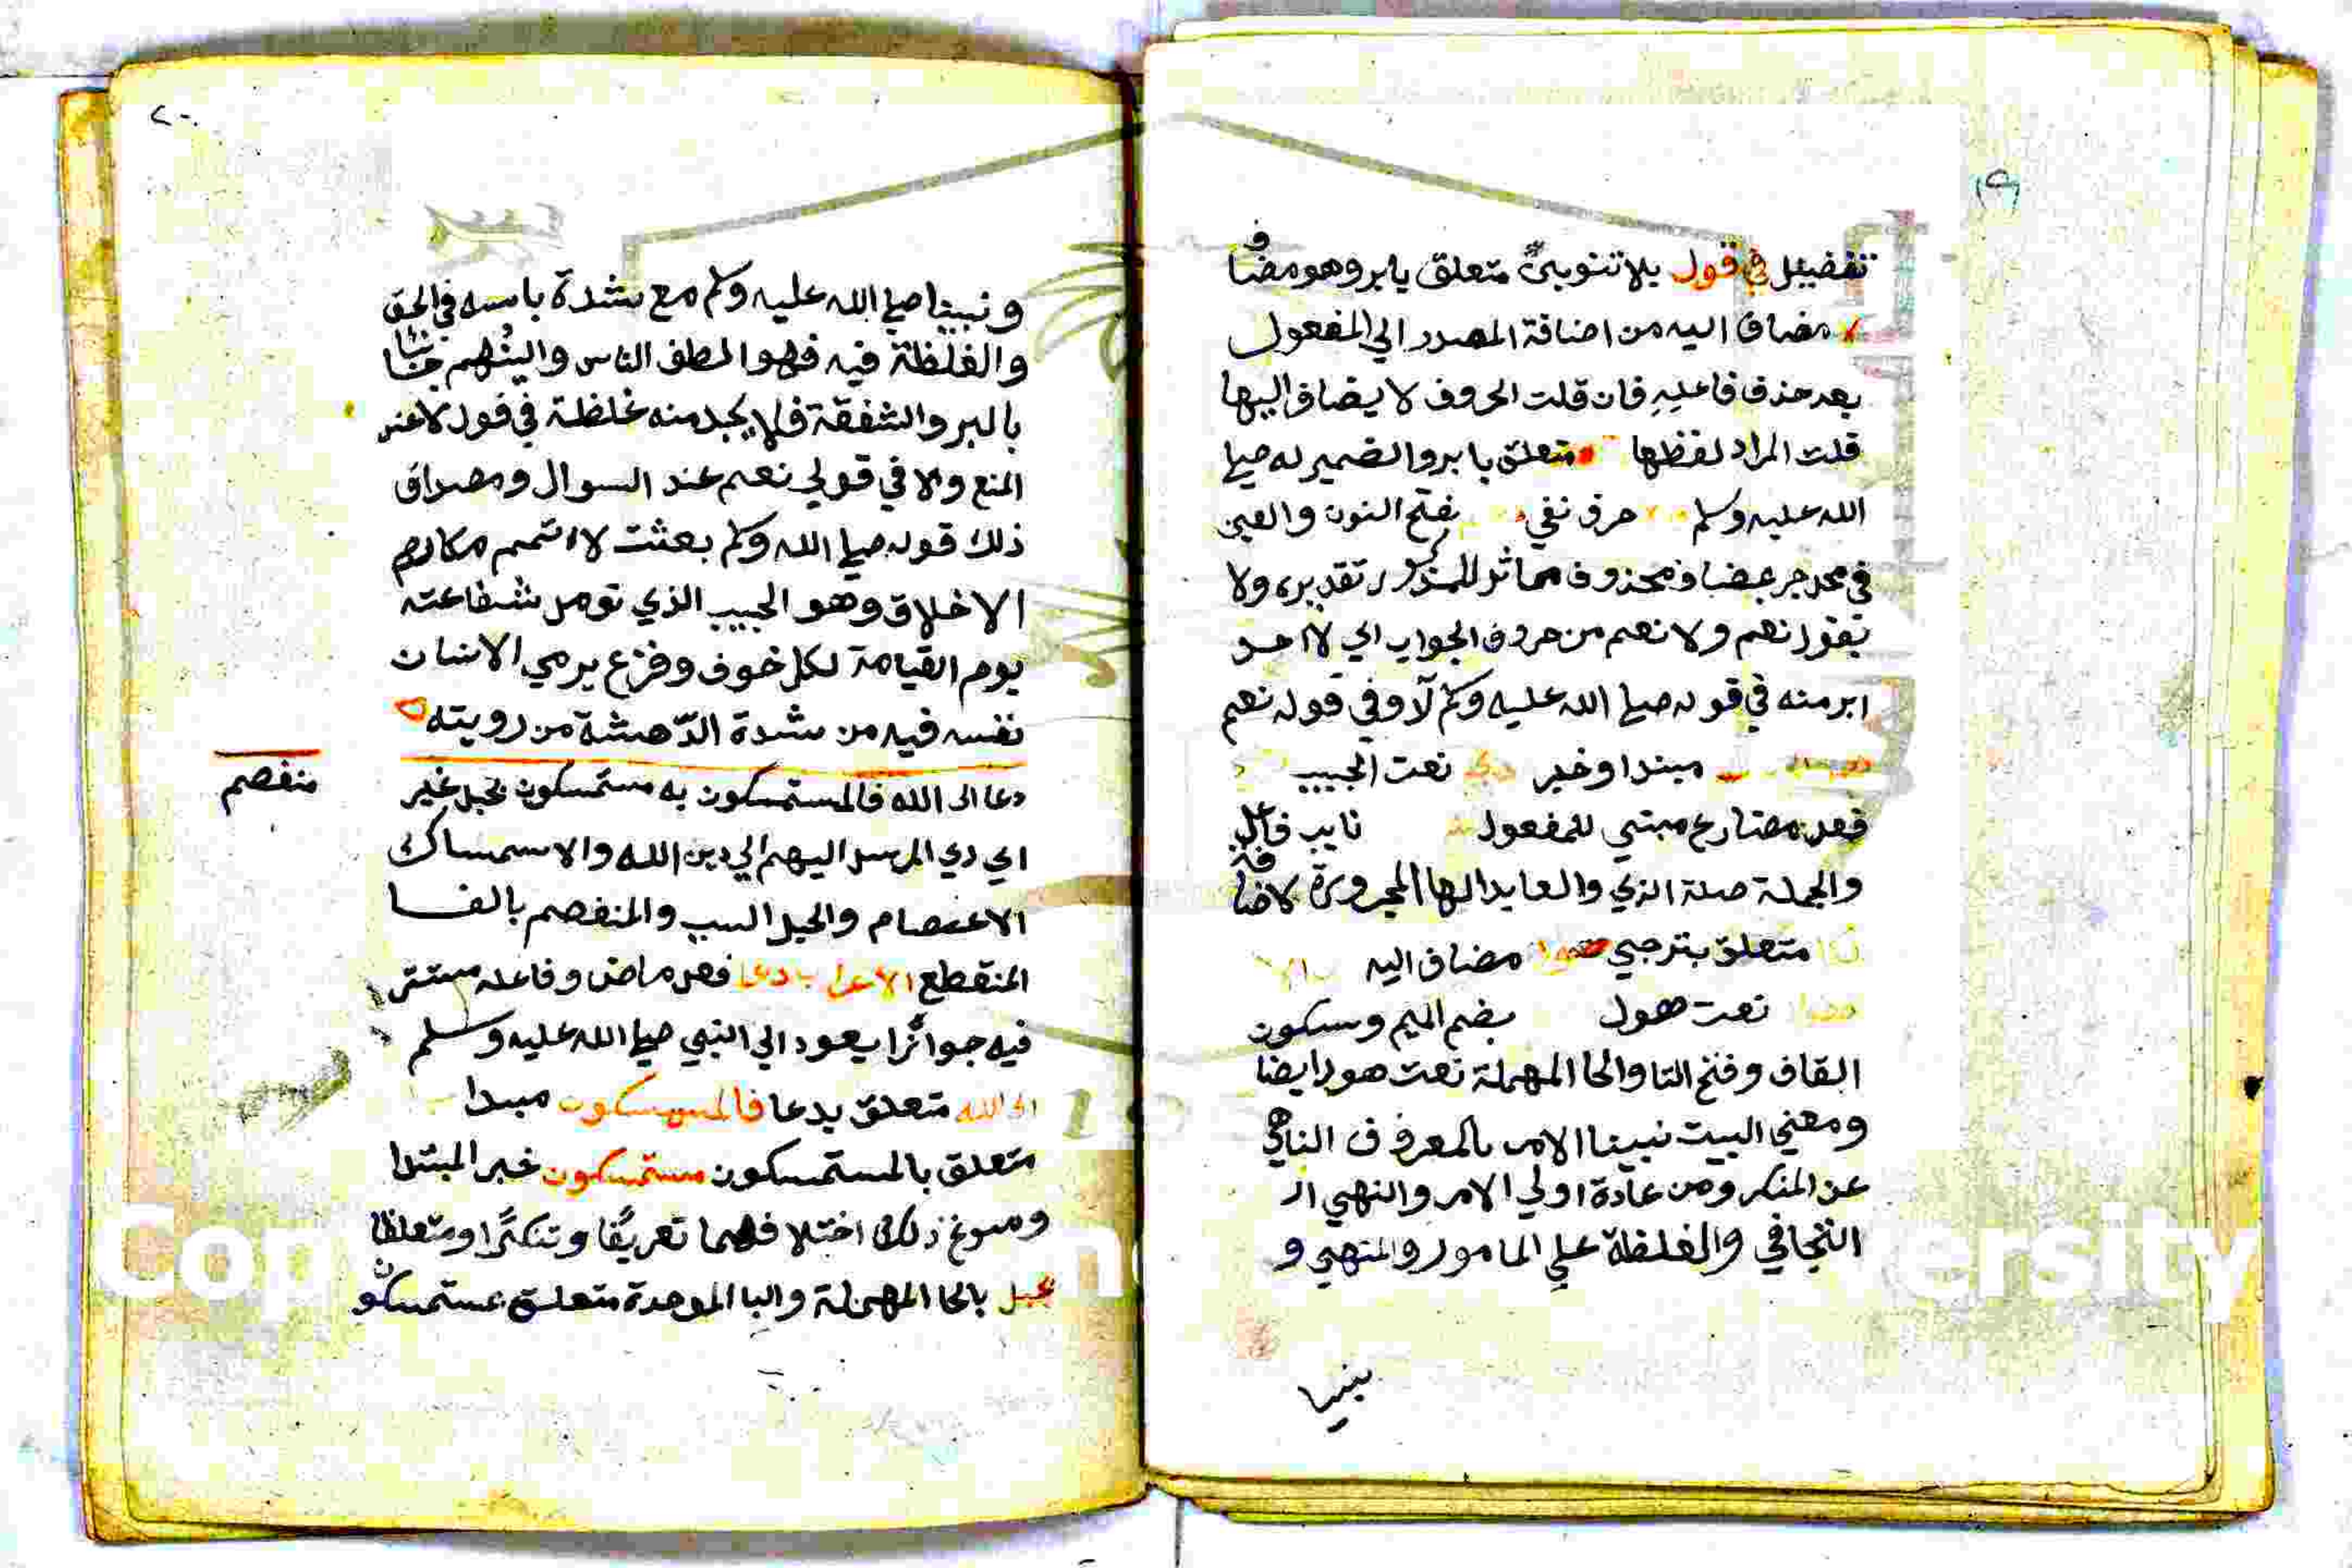 ١٩
تفضيل في قول بلا تنوين متعلق بابر وهو مضاف
لا مضاف اليه من اضافة المصدر الي المفعول
بعد حذف فاعله فان قلت الحروف لا يضاف اليها
قلت المراد لفظها متعلق بابر والضمير له صلي
الله عليه وسلم حرف نفي بفتح النون والعين
في محل جر بمضاف محذوف مماثل للمذكور تقديره ولا
بقول نعم ولا نعم من حروف الجواب اي لا احد
ابر منه في قوله صلي الله عليه وسلم لا وفي قوله نعم
مبتدا وخبر نعت الحبيب
فعل مضارع مبني للمفعول نايب فاعل
والجملة صلة الذي والعايد الها المجرورة لاضافة
متعلق بترجي مضاف اليه
نعت هول بضم الميم وسكون
القاف وفتح التا والحا المهملة نعت هول ايضا
ومعني البيت نبينا الامر بالمعروف الناهي
عن المنكر ومن عادة اولي الامر والنهي
التجافي والغلظة علي المامور والمنهي و
نبينا
٢٠
ونبينا صلي الله عليه وسلم مع شدة باسه في الحق
والغلظة فيه فهو الطف الناس والينهم جنابا
بالبر والشفقة فلا يجد منه غلظة في قول لا عند
المنع ولا في قولي نعم عند السوال ومصداق
ذلك قوله صلي الله وسلم بعثت لاتمم مكارم
الاخلاق وهو الحبيب الذي تومل شفاعته
يوم القيامة لكل خوف وفزع يرمي الانسان
نفسه فيه من شدة الدهشة من رويته
دعا الى الله فالمستمسكون به مستمسكون بحبل غير
منفصم
اي دي المرسل اليهم الي دين الله والاستمساك
الاعتصام والحبل السبب والمنفصم بالفا
المنقطع الاعراب دعا فعل ماض وفاعله مستتر
فيه جوازًا يعود الي النبي صلي الله عليه وسلم
الى الله متعلق بدعا فالمستمسكون مبتدا
متعلق بالمستمسكون مستمسكون خبر المبتدا
ومسوغ ذلك اختلافهما تعريفًا وتنكيرًا ومتعلقا
بحبل بالحا المهملة والبا الموحدة متعلق بمستمسكون